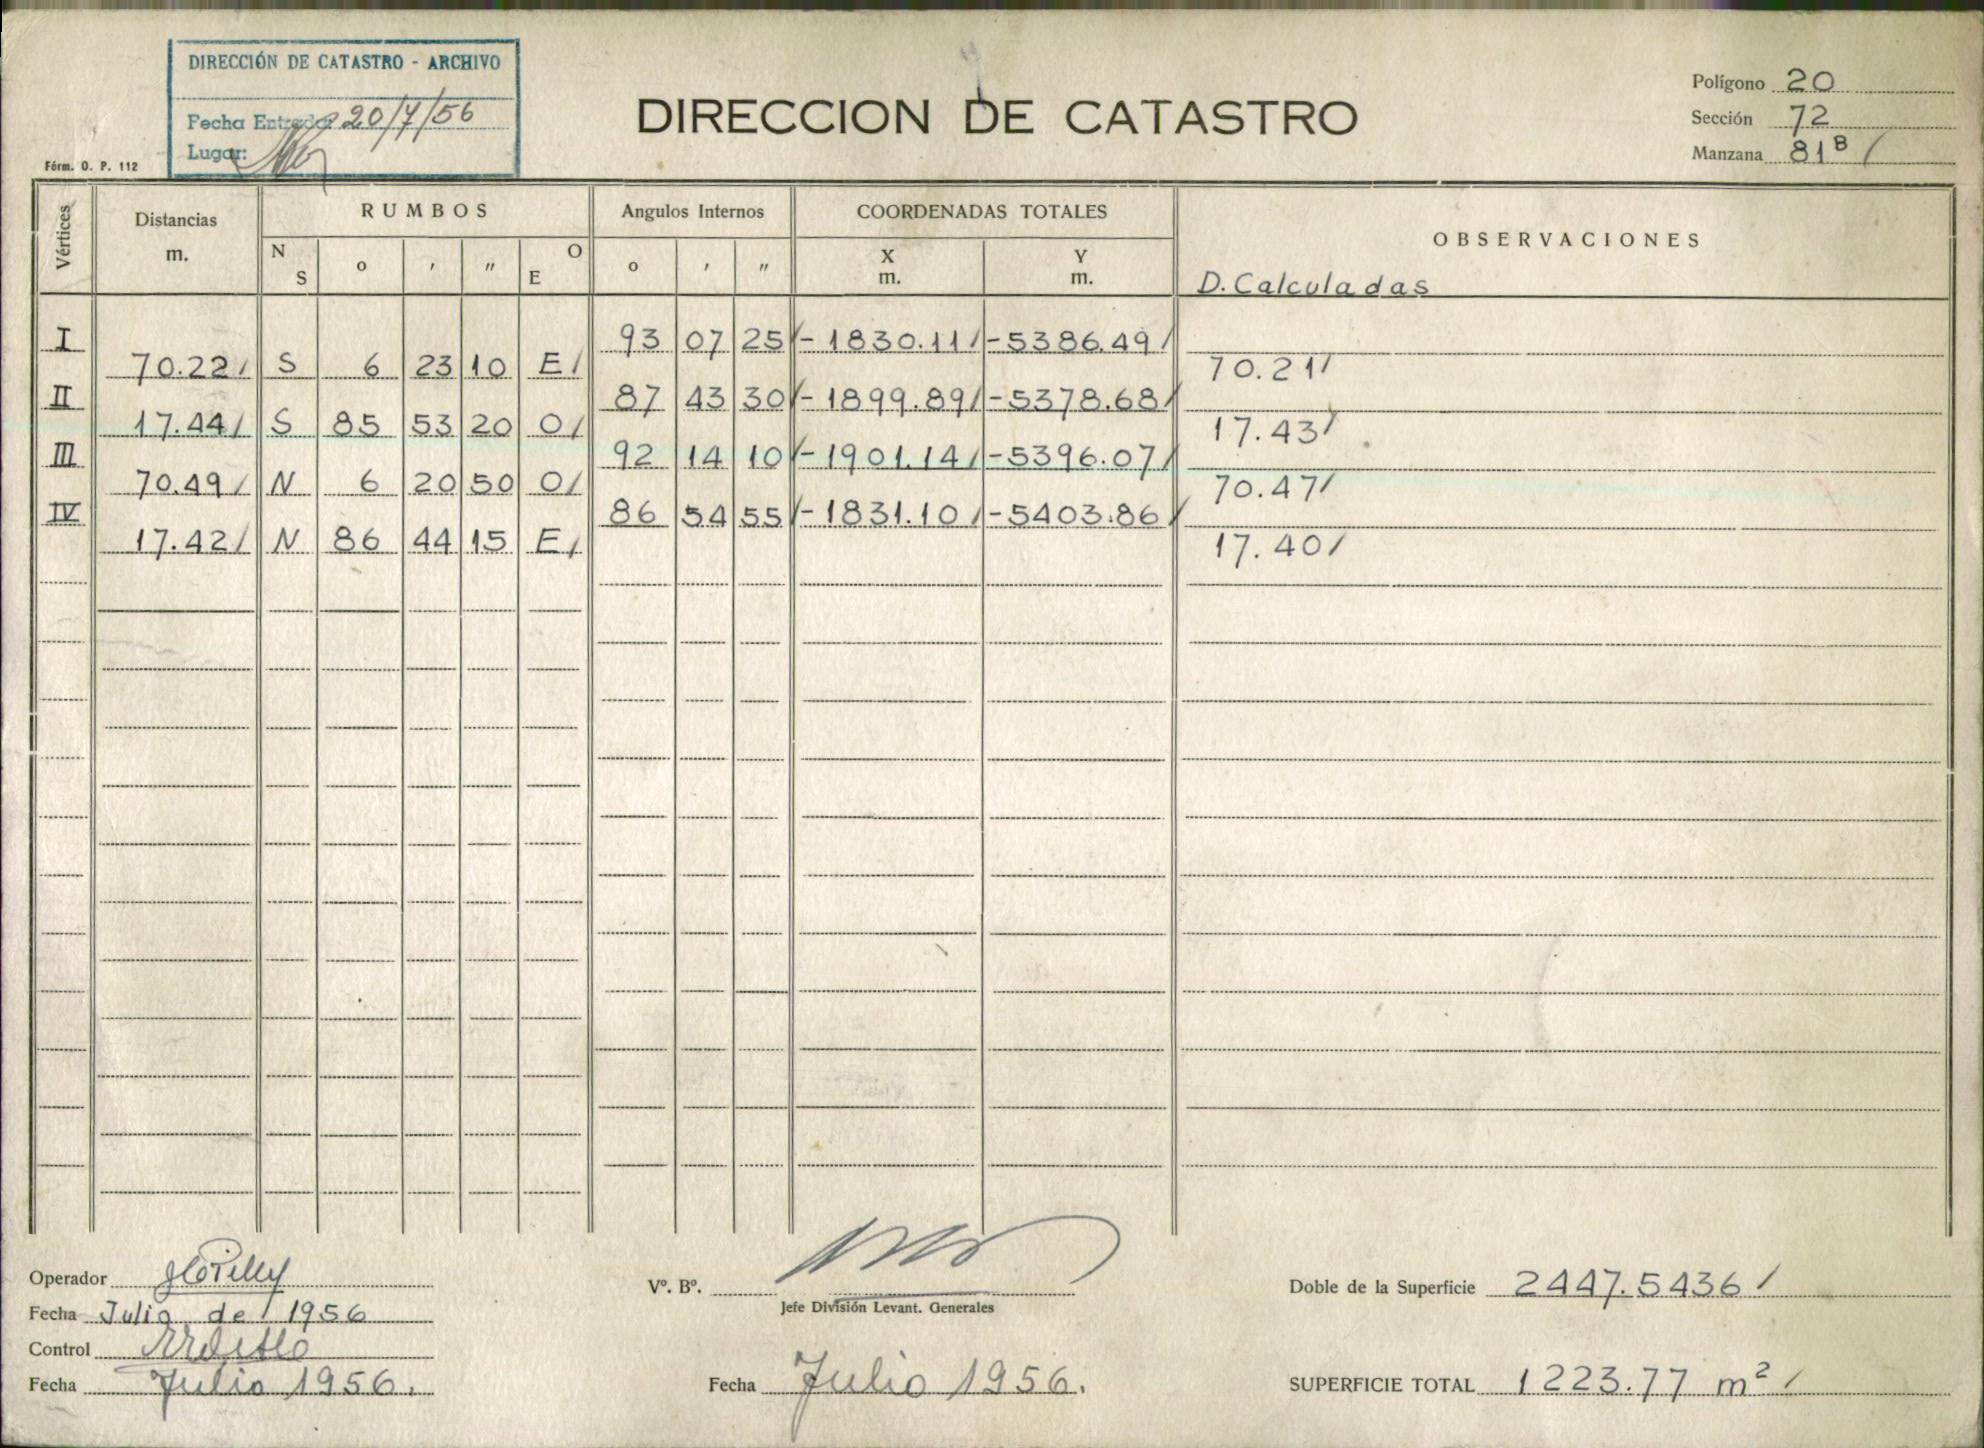 DIRECCIÓN DE CATASTRO - ARCHIVO
Fecha Entrada 20/7/56
Lugar:
Fórm. O. P. 112
DIRECCION DE CATASTRO
Polígono 20
Sección 72
Manzana 81 B /
Vértices Distancias m. RUMBOS Angulos Internos COORDENADAS TOTALES OBSERVACIONES
N S o ′ ″ O E o ′ ″ X m. Y m. D. Calculadas
I 93 07 25/ - 1830.11/ - 5386.49/
70.22/ S 6 23 10 E/ 70.21/
II 87 43 30/ - 1899.89/ - 5378.68/
17.44/ S 85 53 20 O/ 17.43/
III 92 14 10/ - 1901.14/ - 5396.07/
70.49/ N 6 20 50 O/ 70.47/
IV 86 54 55/ - 1831.10/ - 5403.86/
17.42/ N 86 44 15 E/ 17.40/
Operador
Fecha Julio de 1956
Control
Fecha Julio 1956.
Vº. Bº.
Jefe División Levant. Generales
Fecha Julio 1956.
Doble de la Superficie 2447.5436/
SUPERFICIE TOTAL 1223.77 m² /